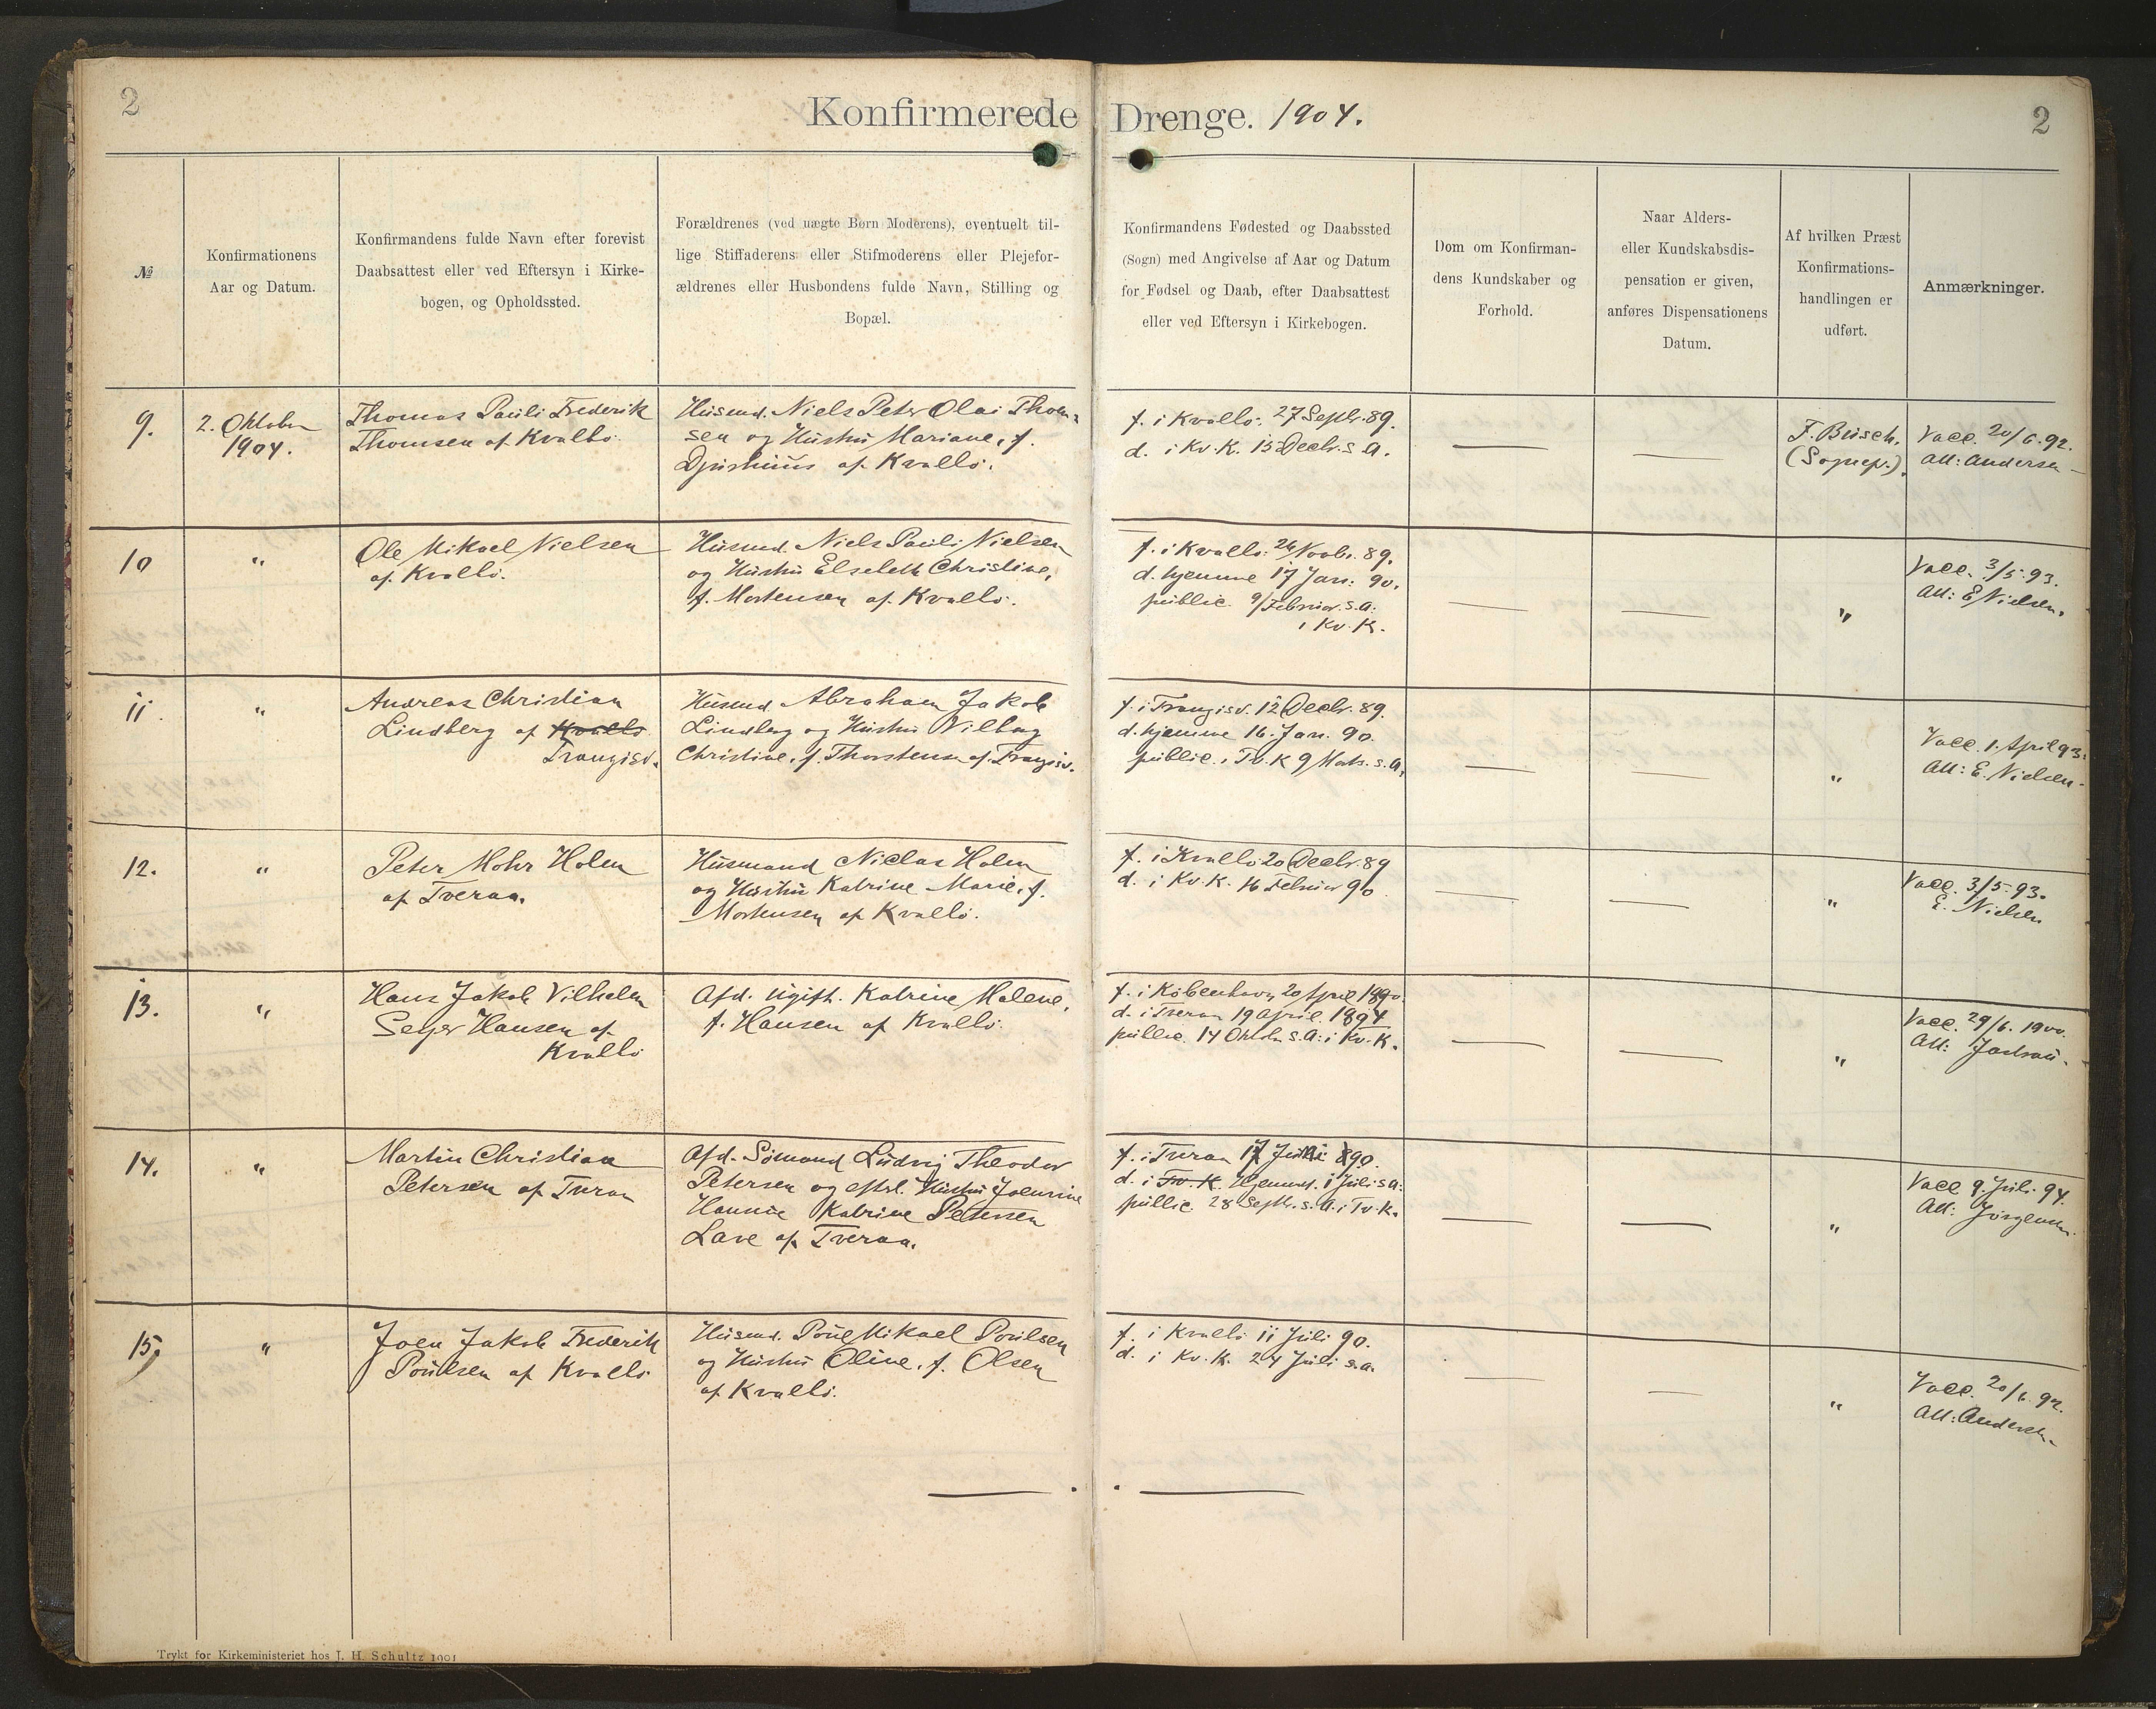 2
Konfirmerede Drenge. 1904.
2
№
Konfirmationens
Aar og Datum.
Konfirmandens fulde Navn efter forevist
Daabsattest eller ved Eftersyn i Kirke-
bogen, og Opholdssted.
Forældrenes (ved uægte Børn Moderens), eventuelt til-
lige Stiffaderens eller Stifmoderens eller Plejefor-
ældrenes eller Husbondens fulde Navn, Stilling og
Bopæl.
Konfirmandens Fødested og Daabssted
(Sogn) med Angivelse af Aar og Datum
for Fødsel og Daab, efter Daabsattest
eller ved Eftersyn i Kirkebogen.
Dom om Konfirman-
dens Kundskaber og
Forhold.
Naar Alders-
eller Kundskabsdis-
pensation er given,
anføres Dispensationens
Datum.
Af hvilken Præst
Konfirmations-
handlingen er
udført.
Anmærkninger.
9.
2. Oktober
1904.
Thomas Pauli Frederik
Thomsen af Kvalbø.
Husmd. Niels Peter Olai Thom-
sen og Hustru Mariane, f.
Djurhuus af Kvalbø.
f. i Kvalbø. 27 Septr. 89.
d. i Kv. K. 15 Decbr. s. A.
—
—
F. Busch.
(Sognep.).
Vacc. 20/6. 92.
Att: Andersen
10
"
Ole Mikael Nielsen
af Kvalbø.
Husmd. Niels Pauli Nielsen
og Hustru Elsebeth Christine,
f. Mortensen af Kvalbø.
f. i Kvalbø. 26 Novbr. 89.
d. hjemme 17 Jan. 90.
public. 9/Februar. s. a.
i Kv. K.
—
—
"
Vacc. 3/5. 93.
Att: E Nielsen.
11.
"
Andreas Christian
Lindberg af Kvalbø
Trangisv.
Husmd Abraham Jakob
Lindberg og Hustru Vilborg
Christine, f. Thorstensen af Trangisv.
f. i Trangisv. 12 Decbr. 89.
d. hjemme 16. Jan. 90.
public. i Tv. K 9 Marts. s. A.
—
—
"
Vacc. 1. April 93.
Att: E. Nielsen.
12.
"
Peter Mohr Holm
af Tveraa.
Husmand Niclas Holm
og Hustru Katrine Marie, f.
Mortensen af Kvalbø.
f. i Kvalbø 20 Decbr. 89
d. i Kv. K. 16 Februar 90
—
—
"
Vacc. 3/5. 93.
E. Nielsen
13.
"
Hans Jakob Vilhelm
Sejer Hansen af
Kvalbø
Afd. Ugift. Katrine Malene,
f. Hansen af Kvalbø.
f. i København 20 April 1890.
d. i Tveraa 19 April. 1894
public. 14 Oktbr s. A: i Kv. K.
—
—
"
Vacc. 29/6. 1900.
Att:
14.
"
Martin Christian
Petersen af Tveraa
Afd. Sømand Ludvig Theodor
Petersen og eftrl. Hustru Joensine
Hannie Katrine Petersen
Lave af Tveraa.
f. i Tveraa 17 Juni 890.
d. i Tv. K. Hjemmet. 1 Juli s A:
public. 28 Septbr. s. A. i Tv. K.
—
—
"
Vacc 9. Juli. 94.
Att: Jørgensen.
15,
"
Joen Jakob Frederik
Poulsen af Kvalbø
Husmd. Poul Mikael Poulsen
og Hustru Oline, f. Olsen
af Kvalbø.
f. i Kvalbø 11 Juli 90.
d. i Kv. K. 24 Juli s. a.
—
—
"
Vacc. 20/6. 92.
Att: Andersen
Trykt for Kirkeministeriet hos J. H. Schultz 1901